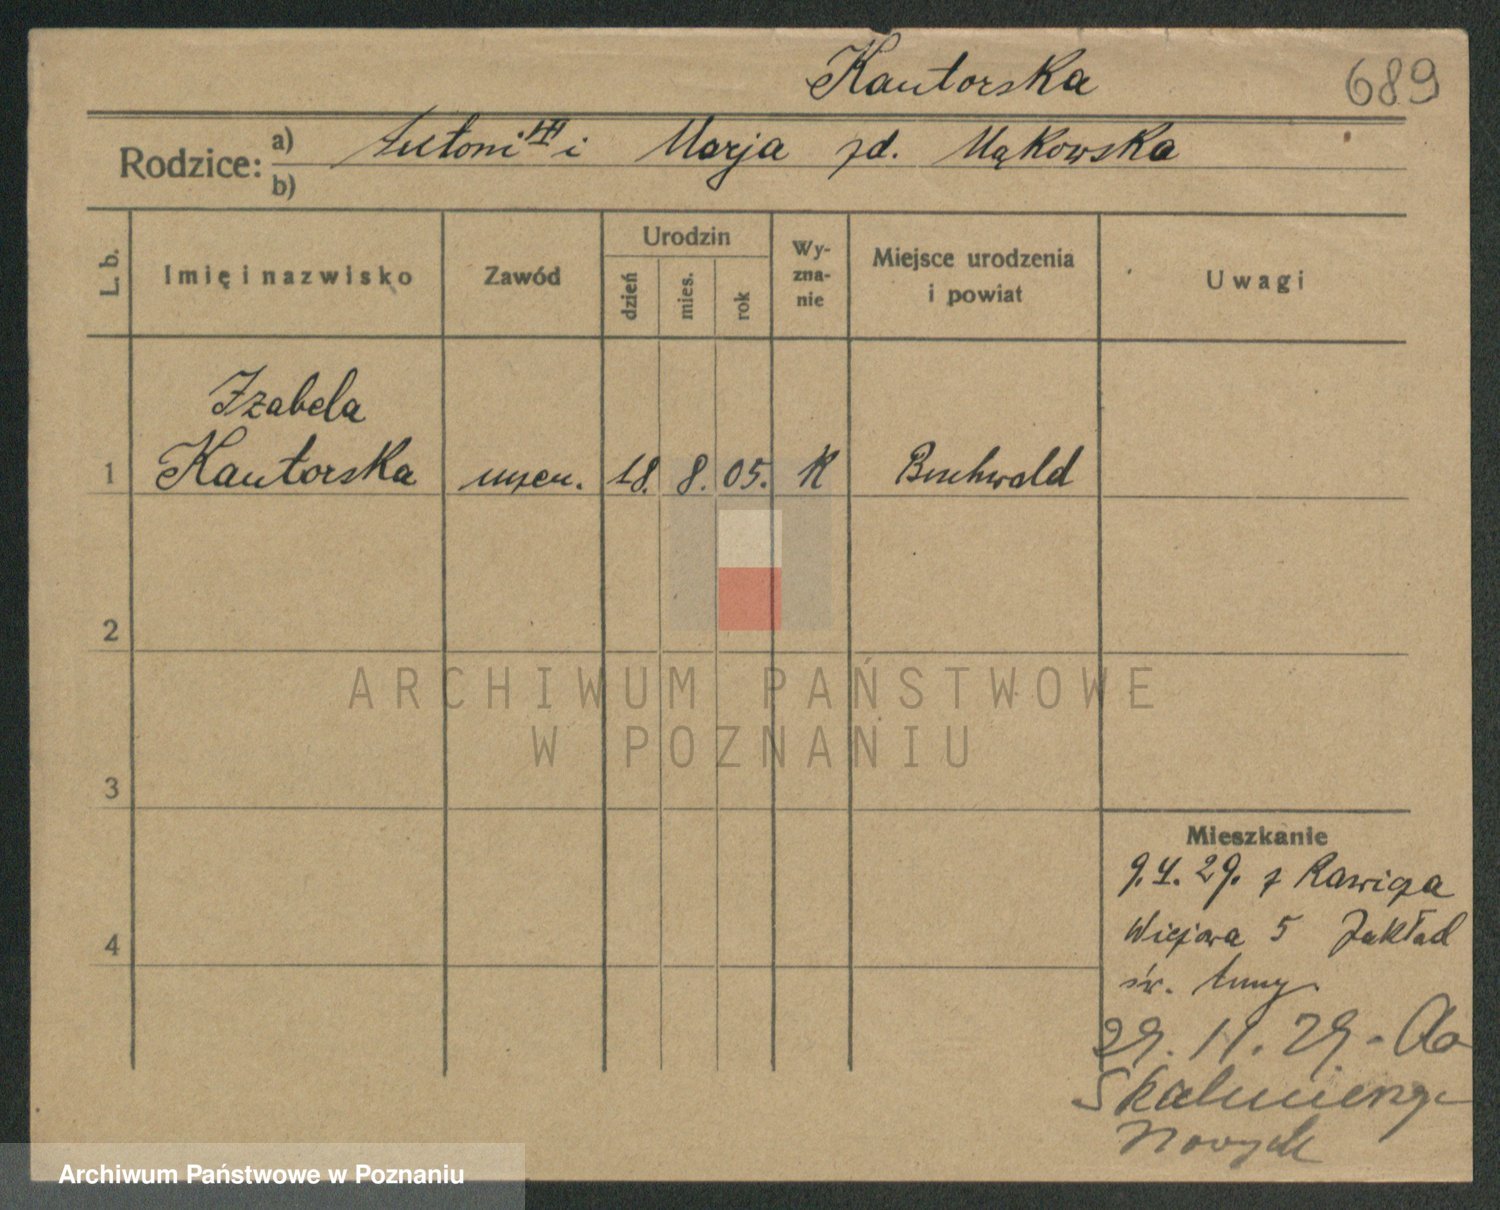 Kantorska
689
Rodzice: a) Antoni i Marja zd. Mąkowska
b)
L. b.
Imię i nazwisko
Zawód
Urodzin
dzień
mies.
rok
Wy-
zna-
nie
Miejsce urodzenia
i powiat
Uwagi
Izabela
1 Kantorska uczen. 18. 8. 05. K Buchwald
2
3
4
ARCHIWUM PAŃSTWOWE
W POZNANIU
Mieszkanie
9.4.29. z Rawicza
Wiejowa 5 Zakład
św. Anny
29. 11. 29. Do
Archiwum Państwowe w Poznaniu